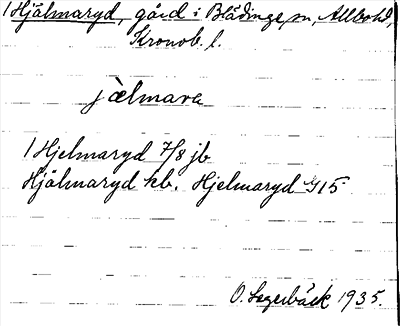 1 Hjälmaryd, gård i Blädinge sn, Allbo hd,
Kronob. l.
jälmara
1 Hjelmaryd 7/8 jb
Hjälmaryd kb. Hjelmaryd 415
O. Lagerbäck 1935.